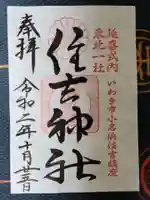 延喜式内
東北一社
いわき市小名浜住吉鎮座
奉拝
住吉神社
令和二年十月廿五日